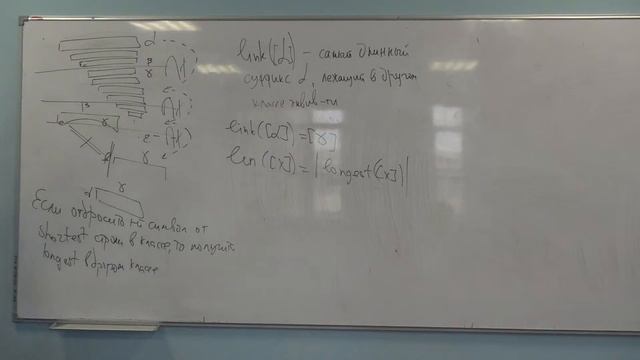 link([α]) - самый длинный
суффикс α, лежащий в другом
классе эквив-ти
link([α]) = [γ]
len([x]) = |longest([x])|
α
β
γ
β
γ
γ
α
γ
Если отбросить символ от
shortest строки в классе, то получим
longest в другом классе